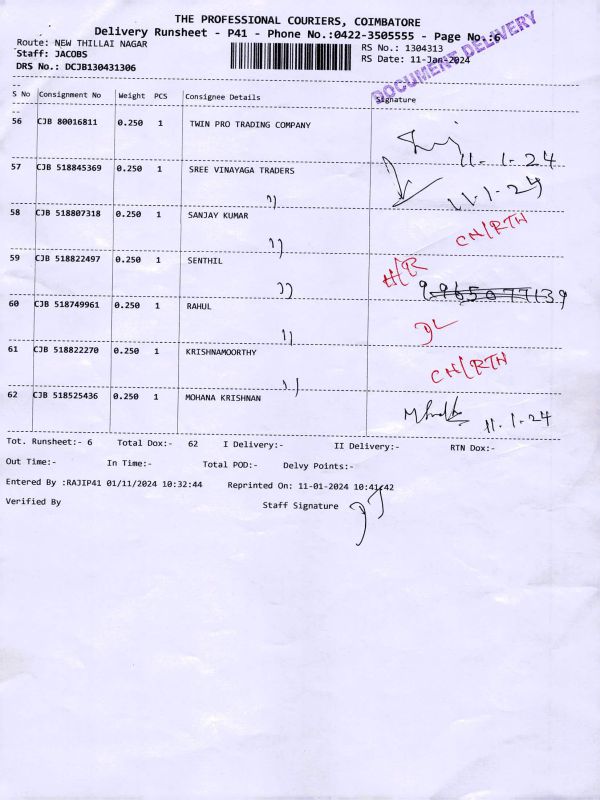 THE PROFESSIONAL COURIERS, COIMBATORE
Delivery Runsheet - P41 - Phone No.:0422-3505555 - Page No.:6
Route: NEW THILLAI NAGAR
RS No.: 1304313
Staff: JACOBS
RS Date: 11-Jan-2024
DRS No.: DCJB130431306
DOCUMENT DELIVERY
S No Consignment No Weight PCS Consignee Details Signature
56 CJB 80016811 0.250 1 TWIN PRO TRADING COMPANY
11-1-24
57 CJB 518845369 0.250 1 SREE VINAYAGA TRADERS
11-1-24
58 CJB 518807318 0.250 1 SANJAY KUMAR
CN/RTN
59 CJB 518822497 0.250 1 SENTHIL
60 CJB 518749961 0.250 1 RAHUL
DL
61 CJB 518822270 0.250 1 KRISHNAMOORTHY
CN/RTN
62 CJB 518525436 0.250 1 MOHANA KRISHNAN
11.1.24
Tot. Runsheet:- 6 Total Dox:- 62 I Delivery:- II Delivery:- RTN Dox:-
Out Time:- In Time:- Total POD:- Delvy Points:-
Entered By :RAJIP41 01/11/2024 10:32:44 Reprinted On: 11-01-2024 10:41:42
Verified By Staff Signature